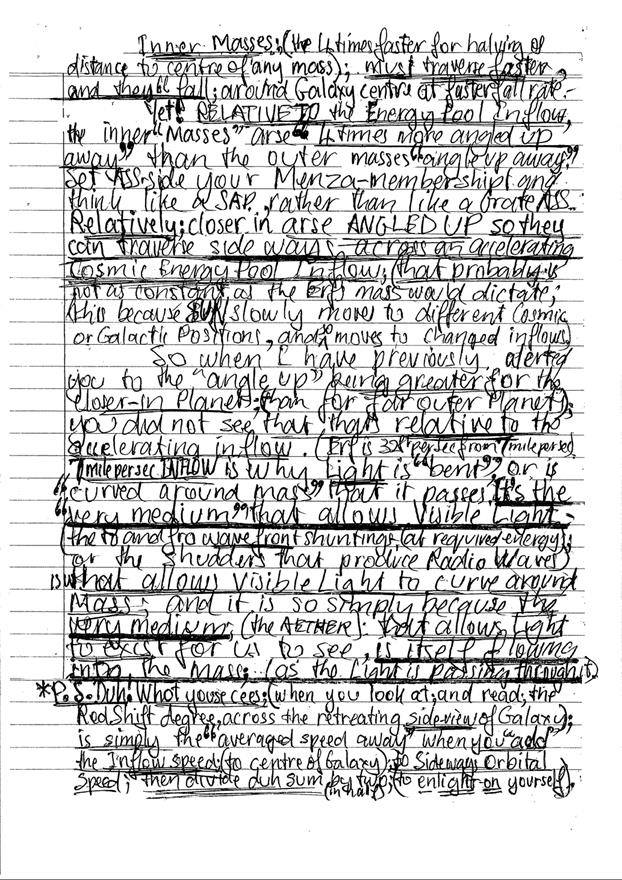 Inner Masses; (the 4 times faster for halving of
distance to centre of any mass); must traverse faster,
and they "fall; around Galaxy centre at faster fall rate.-
Yet! RELATIVE TO the Energy Pool Inflow,
the inner "Masses" arse "4 times more angled up
away" than the outer masses "angle up away."
Set ASS-side your Menza-membership (and
think like a SAP, rather than like a Grate ASS.
Relatively; closer in arse ANGLED UP so they
can traverse side ways across an accelerating
Cosmic Energy Pool Inflow; (that probably is
not as constant, as the Erf's mass would dictate;
this because SUN slowly moves to different Cosmic
or Galactic Positions, and moves to changed inflows,
So when I have previously alerted
you to the "angle up" being greater for the
closer-in Planets; (than for far outer Planet);
you did not see that that's relative to the
accelerating inflow. (Erf is per sec from 7 mile per sec)
7 mile per sec. INFLOW is why Light is "bent", or is
"curved around mass" that it passes. It's the
"very medium" that allows Visible Light -
(the to and fro wave front shuntings (at required energy);
or the Shudders that produce Radio Waves)
is what allows Visible Light to curve around
Mass; and it is so simply because the
very medium; (the AETHER): that allows Light
to exist for us to see, is itself flowing
into the Mass; (as the Light is passing through it).
*P.S. Duh! What youse cees; (when you look at; and read; the
Red Shift degree, across the retreating side-view of Galaxy);
is simply the "averaged speed away" when you "add"
the Inflow speed; (to centre of Galaxy); to Sideway Orbital
Speed; then divide duh sum by two; (to enlight-on yourself).
(in half)